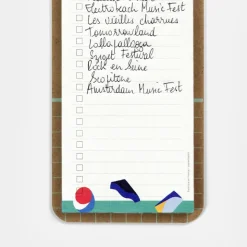 Electrobeach Music Fest
Les vieilles charrues
Tomorrowland
Lollapallooza
Sziget Festival
Rock en Seine
Scopitone
Amsterdam Music Fest